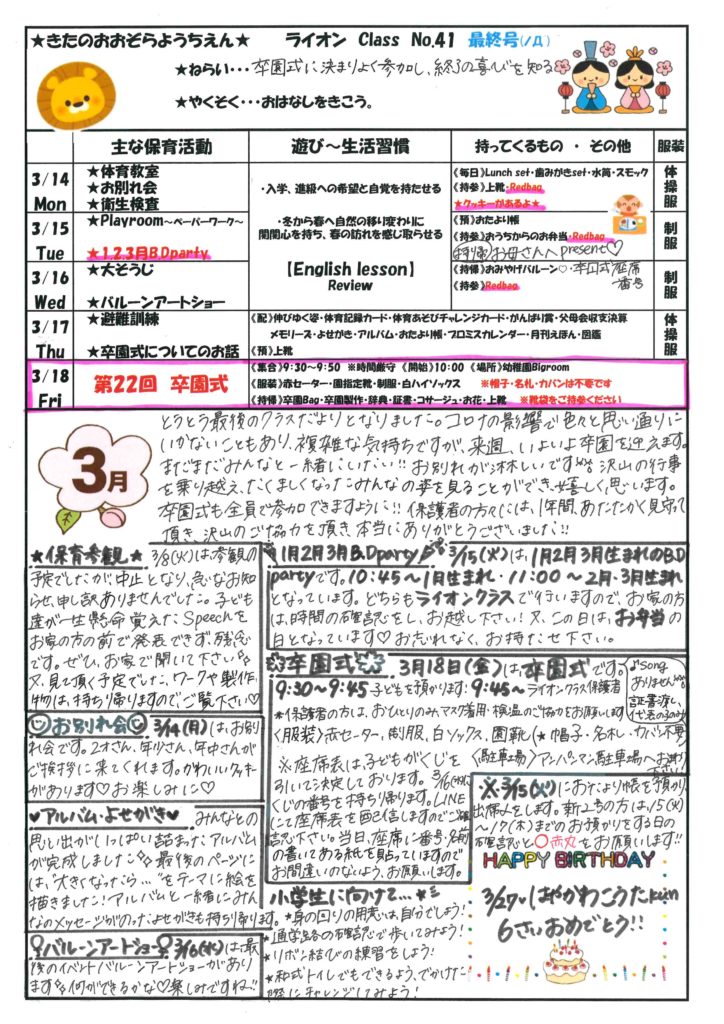 ★きたのおおぞらようちえん★ ライオン Class No.41 最終号(ノД)
★ねらい・・・卒園式に決まりよく参加し、終了の喜びを知る
★やくそく・・・おはなしをきこう。
主な保育活動 遊び～生活習慣 持ってくるもの ・ その他 服装
3/14 Mon
★体育教室
★お別れ会
★衛生検査
・入学、進級への希望と自覚を持たせる
《毎日》Lunch set・歯みがきset・水筒・スモック
《持参》上靴・Redbag
★クッキーがあるよ★
体操服
3/15 Tue
★Playroom～ペーパーワーク～
★1.2.3月B.Dparty
・冬から春へ自然の移り変わりに
関関心を持ち、春の訪れを感じ取らせる
《預》おたより帳
《持参》おうちからのお弁当・Redbag
《持帰》お母さんへpresent♡
制服
3/16 Wed
★大そうじ
★バルーンアートショー
【English lesson】
Review
《持帰》おみやげバルーン♡・卒園式座席番号
《持参》Redbag
制服
3/17 Thu
★避難訓練
★卒園式についてのお話
《配》伸びゆく姿・体育記録カード・体育あそびチャレンジカード・がんばり賞・父母会収支決算
メモリーズ・よせがき・アルバム・おたより帳・プロミスカレンダー・月刊えほん・図鑑
《預》上靴
体操服
3/18 Fri
第22回 卒園式
《集合》9:30～9:50 ※時間厳守 《開始》10:00 《場所》幼稚園Bigroom
《服装》赤セーター・園指定靴・制服・白ハイソックス ※帽子・名札・カバンは不要です
《持帰》卒園Bag・卒園製作・辞典・証書・コサージュ・お花・上靴 ※靴袋をご持参ください
制服
3月
とうとう最後のクラスだよりとなりました。コロナの影響で色々と思い通りに
いかないこともあり、複雑な気持ちですが、来週、いよいよ卒園を迎えます。
まだまだみんなと一緒にいたい!! お別れが淋しいです 沢山の行事
を乗り越え、たくましくなったみんなの姿を見ることができ、嬉しく思います。
卒園式も全員で参加できますように!! 保護者の方々には、1年間、あたたかく見守って
頂き、沢山のご協力を頂き、本当にありがとうございました!!
★保育参観★ 3/8(火)は参観の
予定でしたが、中止となり、急なお知
らせ、申し訳ありませんでした。子ども
達が一生懸命覚えたSpeechを
お家の方の前で発表できず、残念
です。ぜひ、お家で聞いて下さい
又、見て頂く予定でした、ワークや製作
物は、持ち帰りますのでご覧下さい♡
1月2月3月B.Dparty 3/15(火)は、1月2月3月生まれのB.D
partyです。10:45～1月生まれ・11:00～2月・3月生まれ
となっています。どちらもライオンクラスで行いますので、お家の方
は、時間の確認をし、お越し下さい! 又、この日は、お弁当の
日となっています♡お忘れなく、お持たせ下さい。
お別れ会 3/14(月)は、お別
れ会です。2才さん、年少さん、年中さんが
ご挨拶に来てくれます。かわいいクッキー
があります♡お楽しみに♡
卒園式 3月18日(金)は、卒園式です。
♪song
ありません
証書渡し、
代表の子のみ
9:30～9:45 子どもを預かります・9:45～ライオンクラス保護者
*保護者の方は、おひとりのみ、マスク着用・検温のご協力をお願いします
〈服装〉赤セーター、制服、白ソックス、園靴(★帽子・名札・カバン不要)
〈駐車場〉アンパンマン駐車場へお停め下さい
※座席表は、子どもがくじを
引いて決定しております。3/16(水)
くじの番号を持ち帰ります。LINE
にて座席表を配信しますのでご確
認下さい。当日、座席に番号・名前
の書いてある紙を貼っていますので
お間違いのないよう、お願いします。
※3/15(火)におたより帳を預かり
出席〆をします。新2号の方は、15(火)
～17(木)までのお預かりをする日の
確認と○赤丸をお願いします!!
♥アルバム・よせがき♥ みんなとの
思い出がいっぱい詰まったアルバム
が完成しました 最後のページに
は、"大きくなったら…"をテーマに絵を
描きました! アルバムと一緒にみん
なのメッセージがのったよせがきも持ち帰ります。
バルーンアートショー 3/16(水)は、最
後のイベント! バルーンアートショーがあり
ます 何ができるかな♡楽しみですね!!
小学生に向けて…★☆
*身の回りの用意は、自分でしよう!
*通学路の確認で歩いてみよう!
*リボン結びの練習をしよう!
*和式トイレでもできるよう、でかけた
際にチャレンジしてみよう!
HAPPY BIRTHDAY
3/27・はやかわこうたkun
6さいおめでとう!!